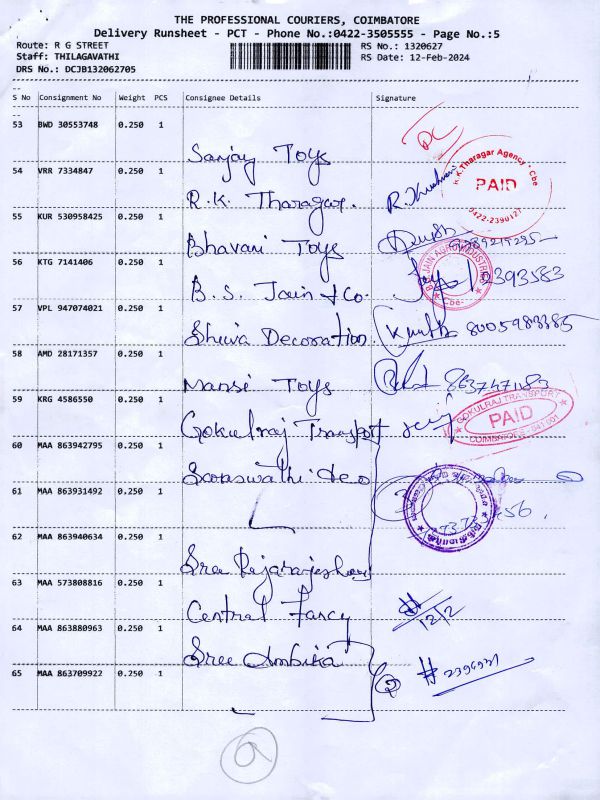 THE PROFESSIONAL COURIERS, COIMBATORE
Delivery Runsheet - PCT - Phone No.:0422-3505555 - Page No.:5
Route: R G STREET RS No.: 1320627
Staff: THILAGAVATHI RS Date: 12-Feb-2024
DRS No.: DCJB132062705
S No Consignment No Weight PCS Consignee Details Signature
53 BWD 30553748 0.250 1 Sanjay Toys DC
54 VRR 7334847 0.250 1 R.K. Tharagar.
K.K.Tharagar Agency * Cbe
PAID
0422-2390127
55 KUR 530958425 0.250 1 Bhavani Toys
56 KTG 7141406 0.250 1 B.S. Jain & Co. 2393583
57 VPL 947074021 0.250 1 Shiva Decoration 8005983385
58 AMD 28171357 0.250 1 Mansi Toys
59 KRG 4586550 1 Gokulraj Transport
GOKULRAJ TRANSPORT
PAID
COIMBATORE - 641 001
60 MAA 863942795 0.250 1
61 MAA 863931492 0.250 1
62 MAA 863940634 0.250 1 Sree Rajarajeshwari
63 MAA 573808816 0.250 1 Central Fancy 12/2
64 MAA 863880963 0.250 1 Sree Ambika
65 MAA 863709922 0.250 1 2